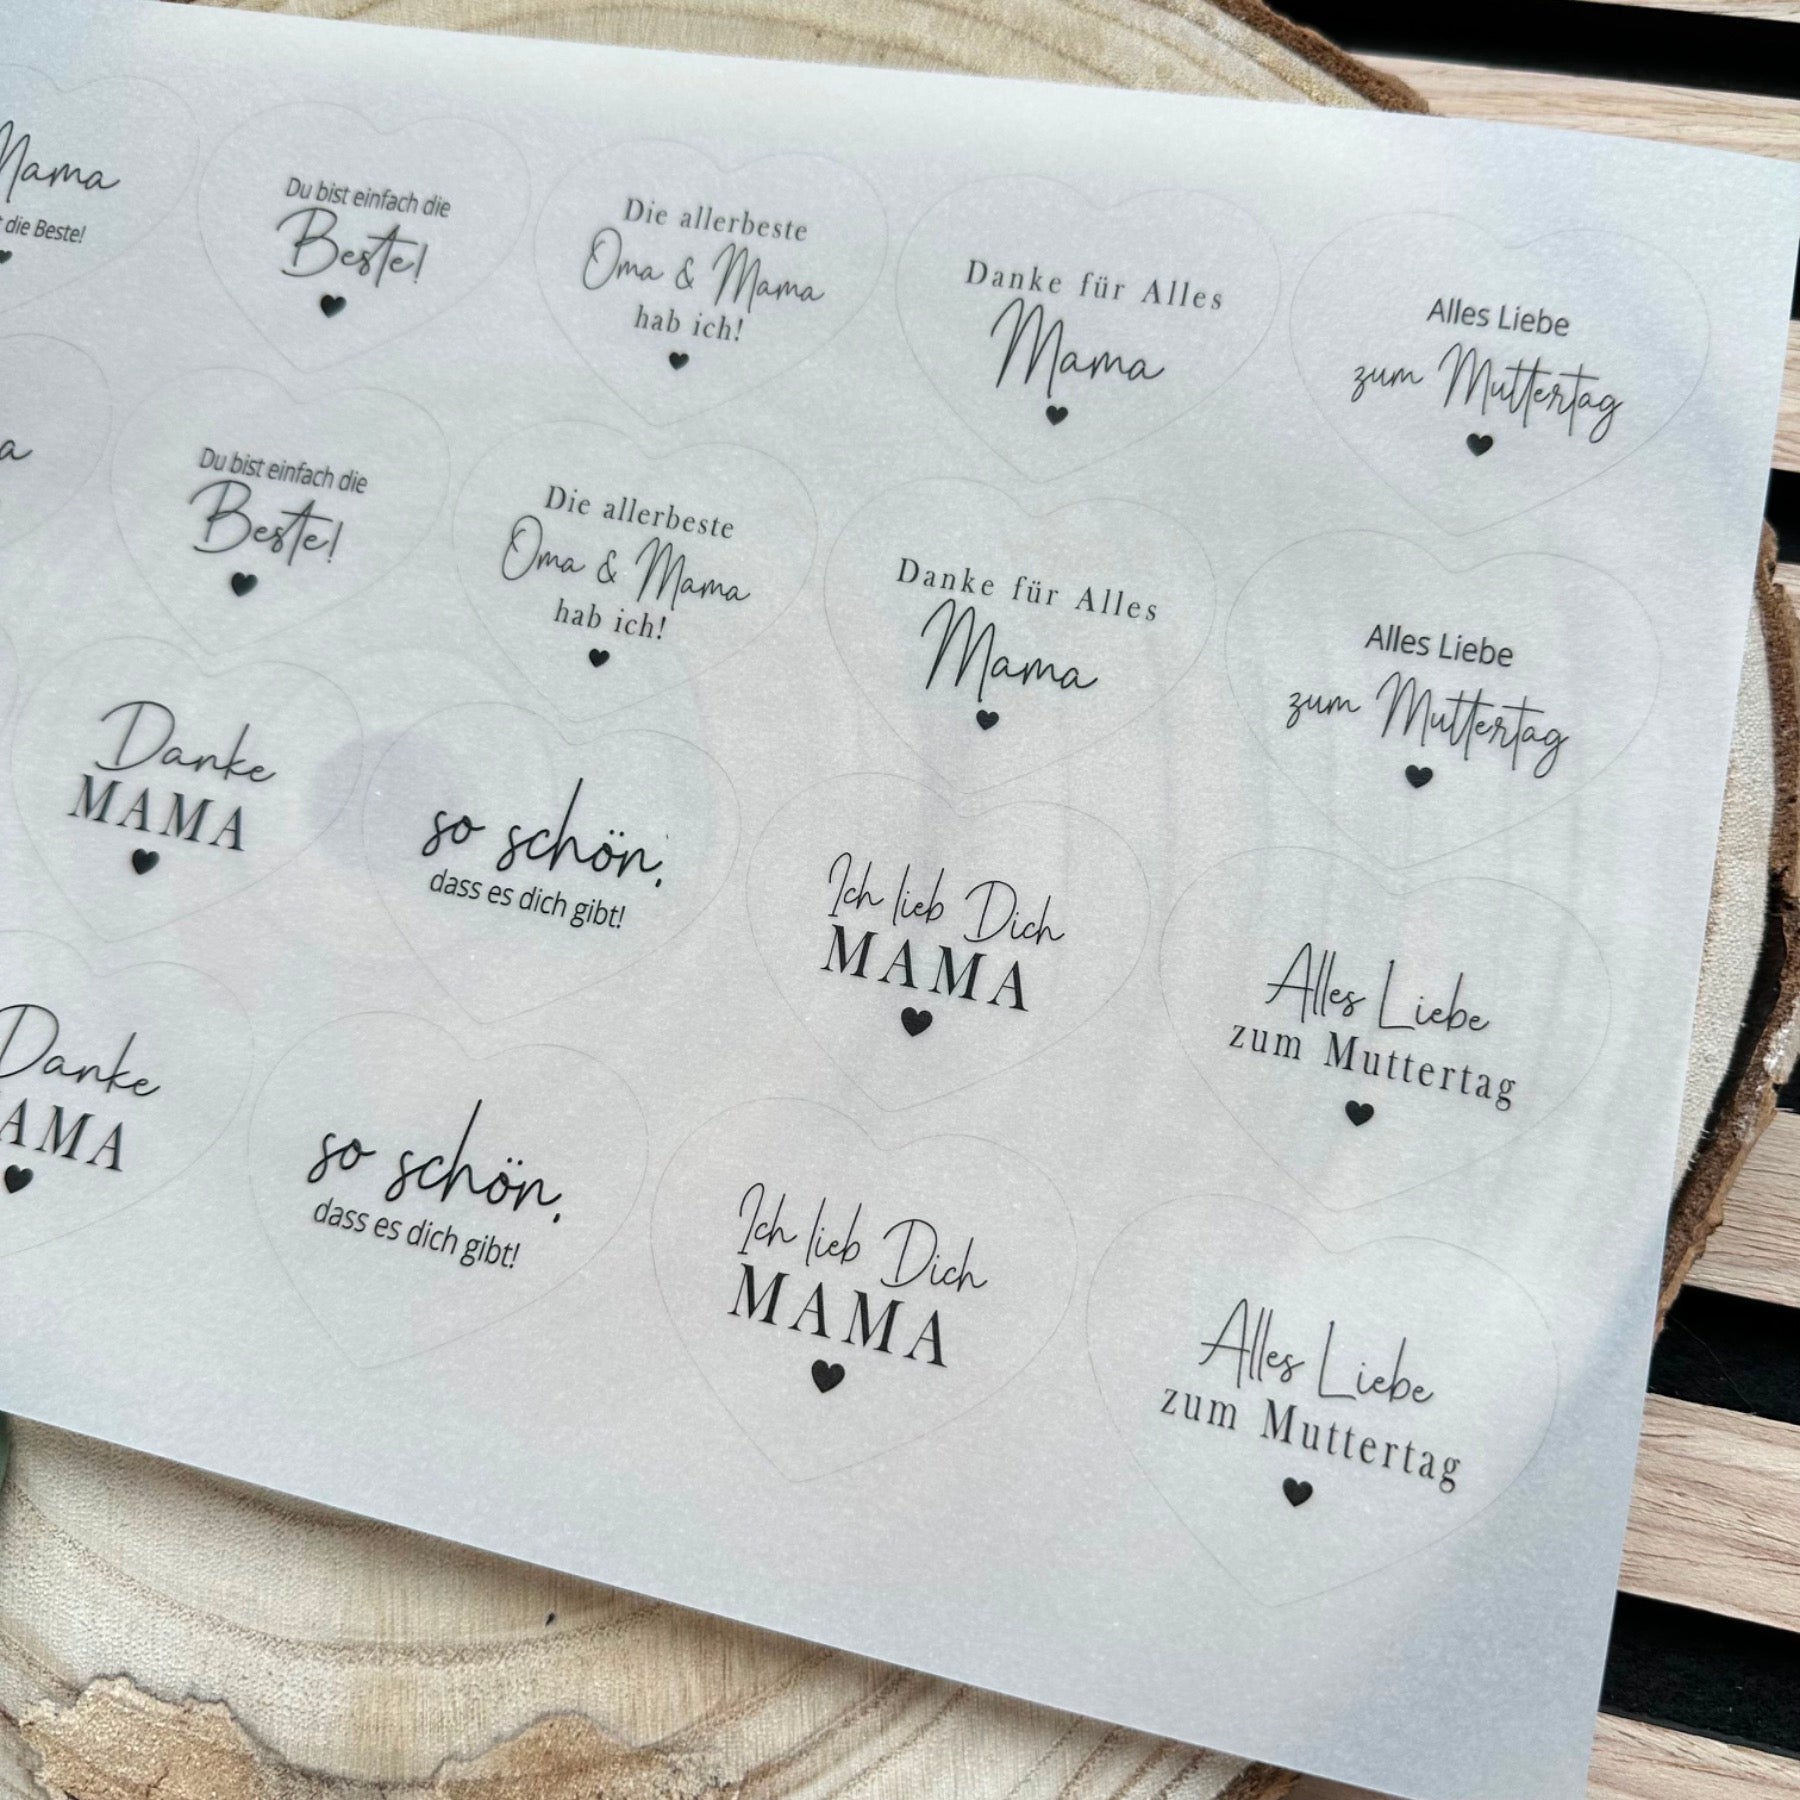 Mama
die Beste!
Du bist einfach die
Beste!
Die allerbeste
Oma & Mama
hab ich!
Danke für Alles
Mama
Alles Liebe
zum Muttertag
Du bist einfach die
Beste!
Die allerbeste
Oma & Mama
hab ich!
Danke für Alles
Mama
Alles Liebe
zum Muttertag
Danke
MAMA
so schön,
dass es dich gibt!
Ich lieb Dich
MAMA
Alles Liebe
zum Muttertag
Danke
AMA
so schön,
dass es dich gibt!
Ich lieb Dich
MAMA
Alles Liebe
zum Muttertag